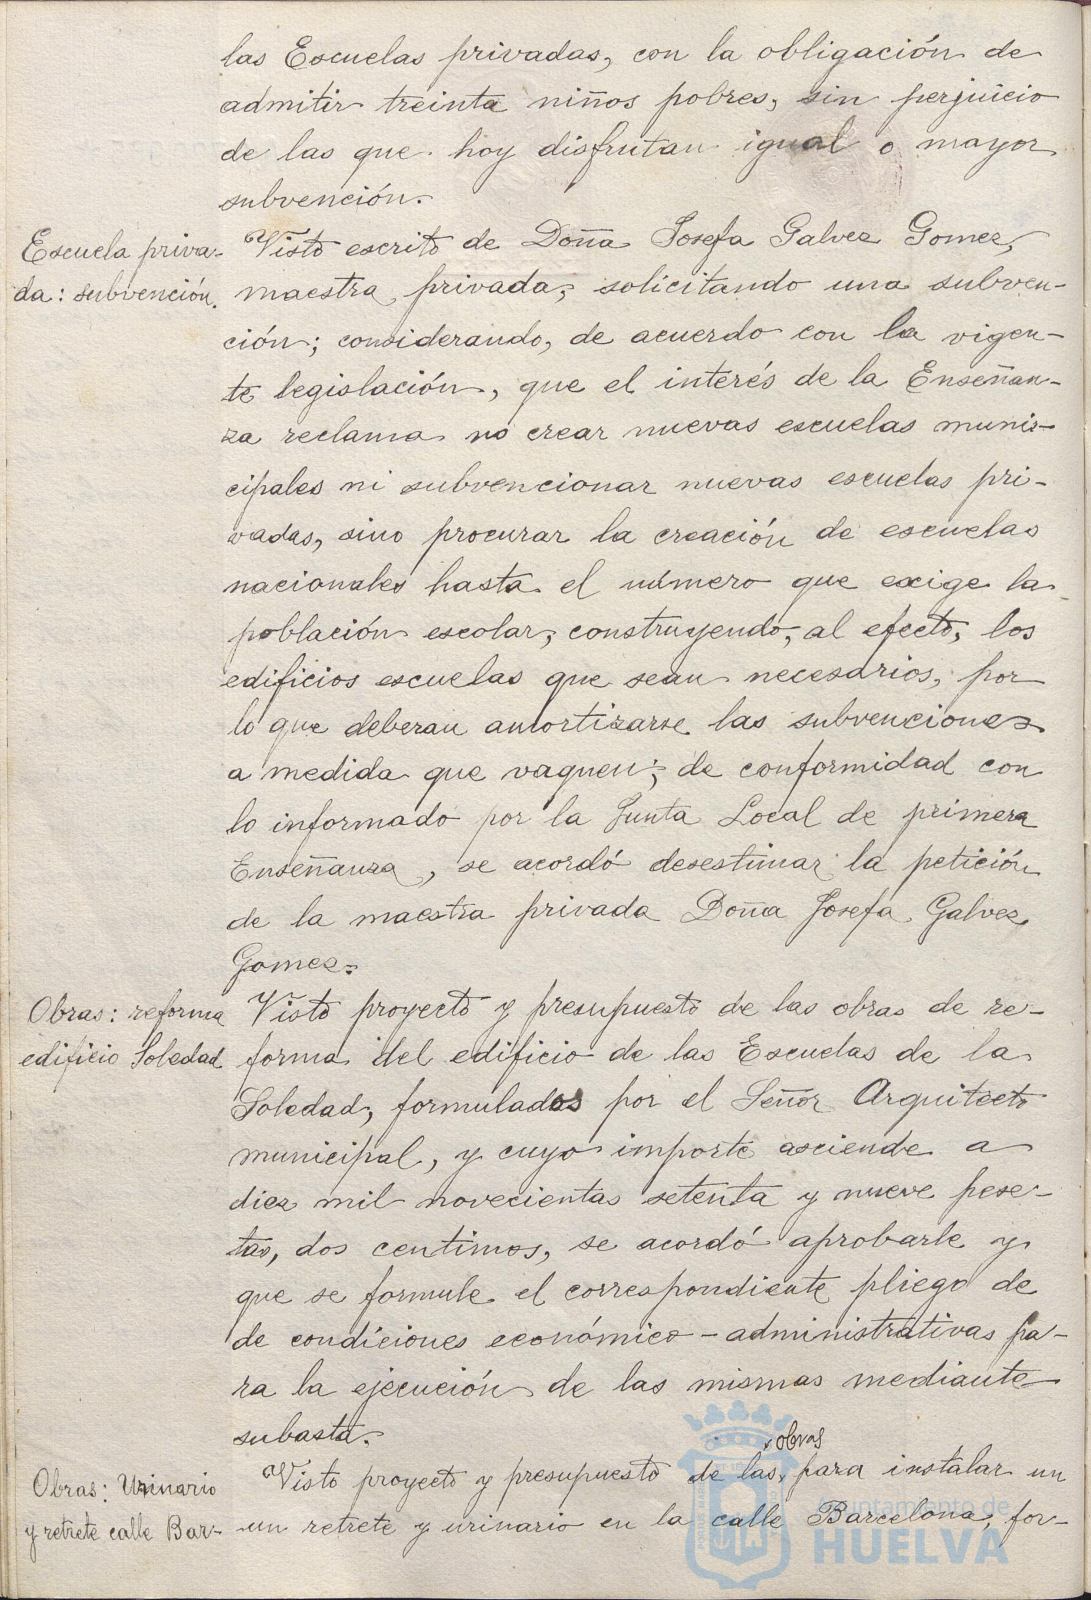 las Escuelas privadas, con la obligación de
admitir treinta niños pobres, sin perjuicio
de las que hoy disfrutan igual o mayor
subvención.
Escuela priva-
da: subvención.
Visto escrito de Doña Josefa Galvez Gomez,
maestra privada, solicitando una subven-
ción; considerando, de acuerdo con la vigen-
te legislación, que el interés de la Enseñan-
za reclama no crear nuevas escuelas muni-
cipales ni subvencionar nuevas escuelas pri-
vadas, sino procurar la creación de escuelas
nacionales hasta el número que exige la
población escolar, construyendo, al efecto, los
edificios escuelas que sean necesarios, por
lo que deberan amortizarse las subvenciones
a medida que vaquen; de conformidad con
lo informado por la Junta Local de primera
Enseñanza, se acordó desestimar la petición
de la maestra privada Doña Josefa Galvez
Gomez.
Obras: reforma
edificio Soledad
Visto proyecto y presupuesto de las obras de re-
forma del edificio de las Escuelas de la
Soledad, formulados por el Señor Arquitecto
municipal, y cuyo importe asciende a
diez mil novecientas setenta y nueve pese-
tas, dos centimos, se acordó aprobarle y
que se formule el correspondiente pliego de
de condiciones económico-administrativas pa-
ra la ejecución de las mismas mediante
subasta.
Obras: Urinario
y retrete calle Bar-
obras
Visto proyecto y presupuesto de las, para instalar un
un retrete y urinario en la calle Barcelona, for-
Ayuntamiento de
HUELVA